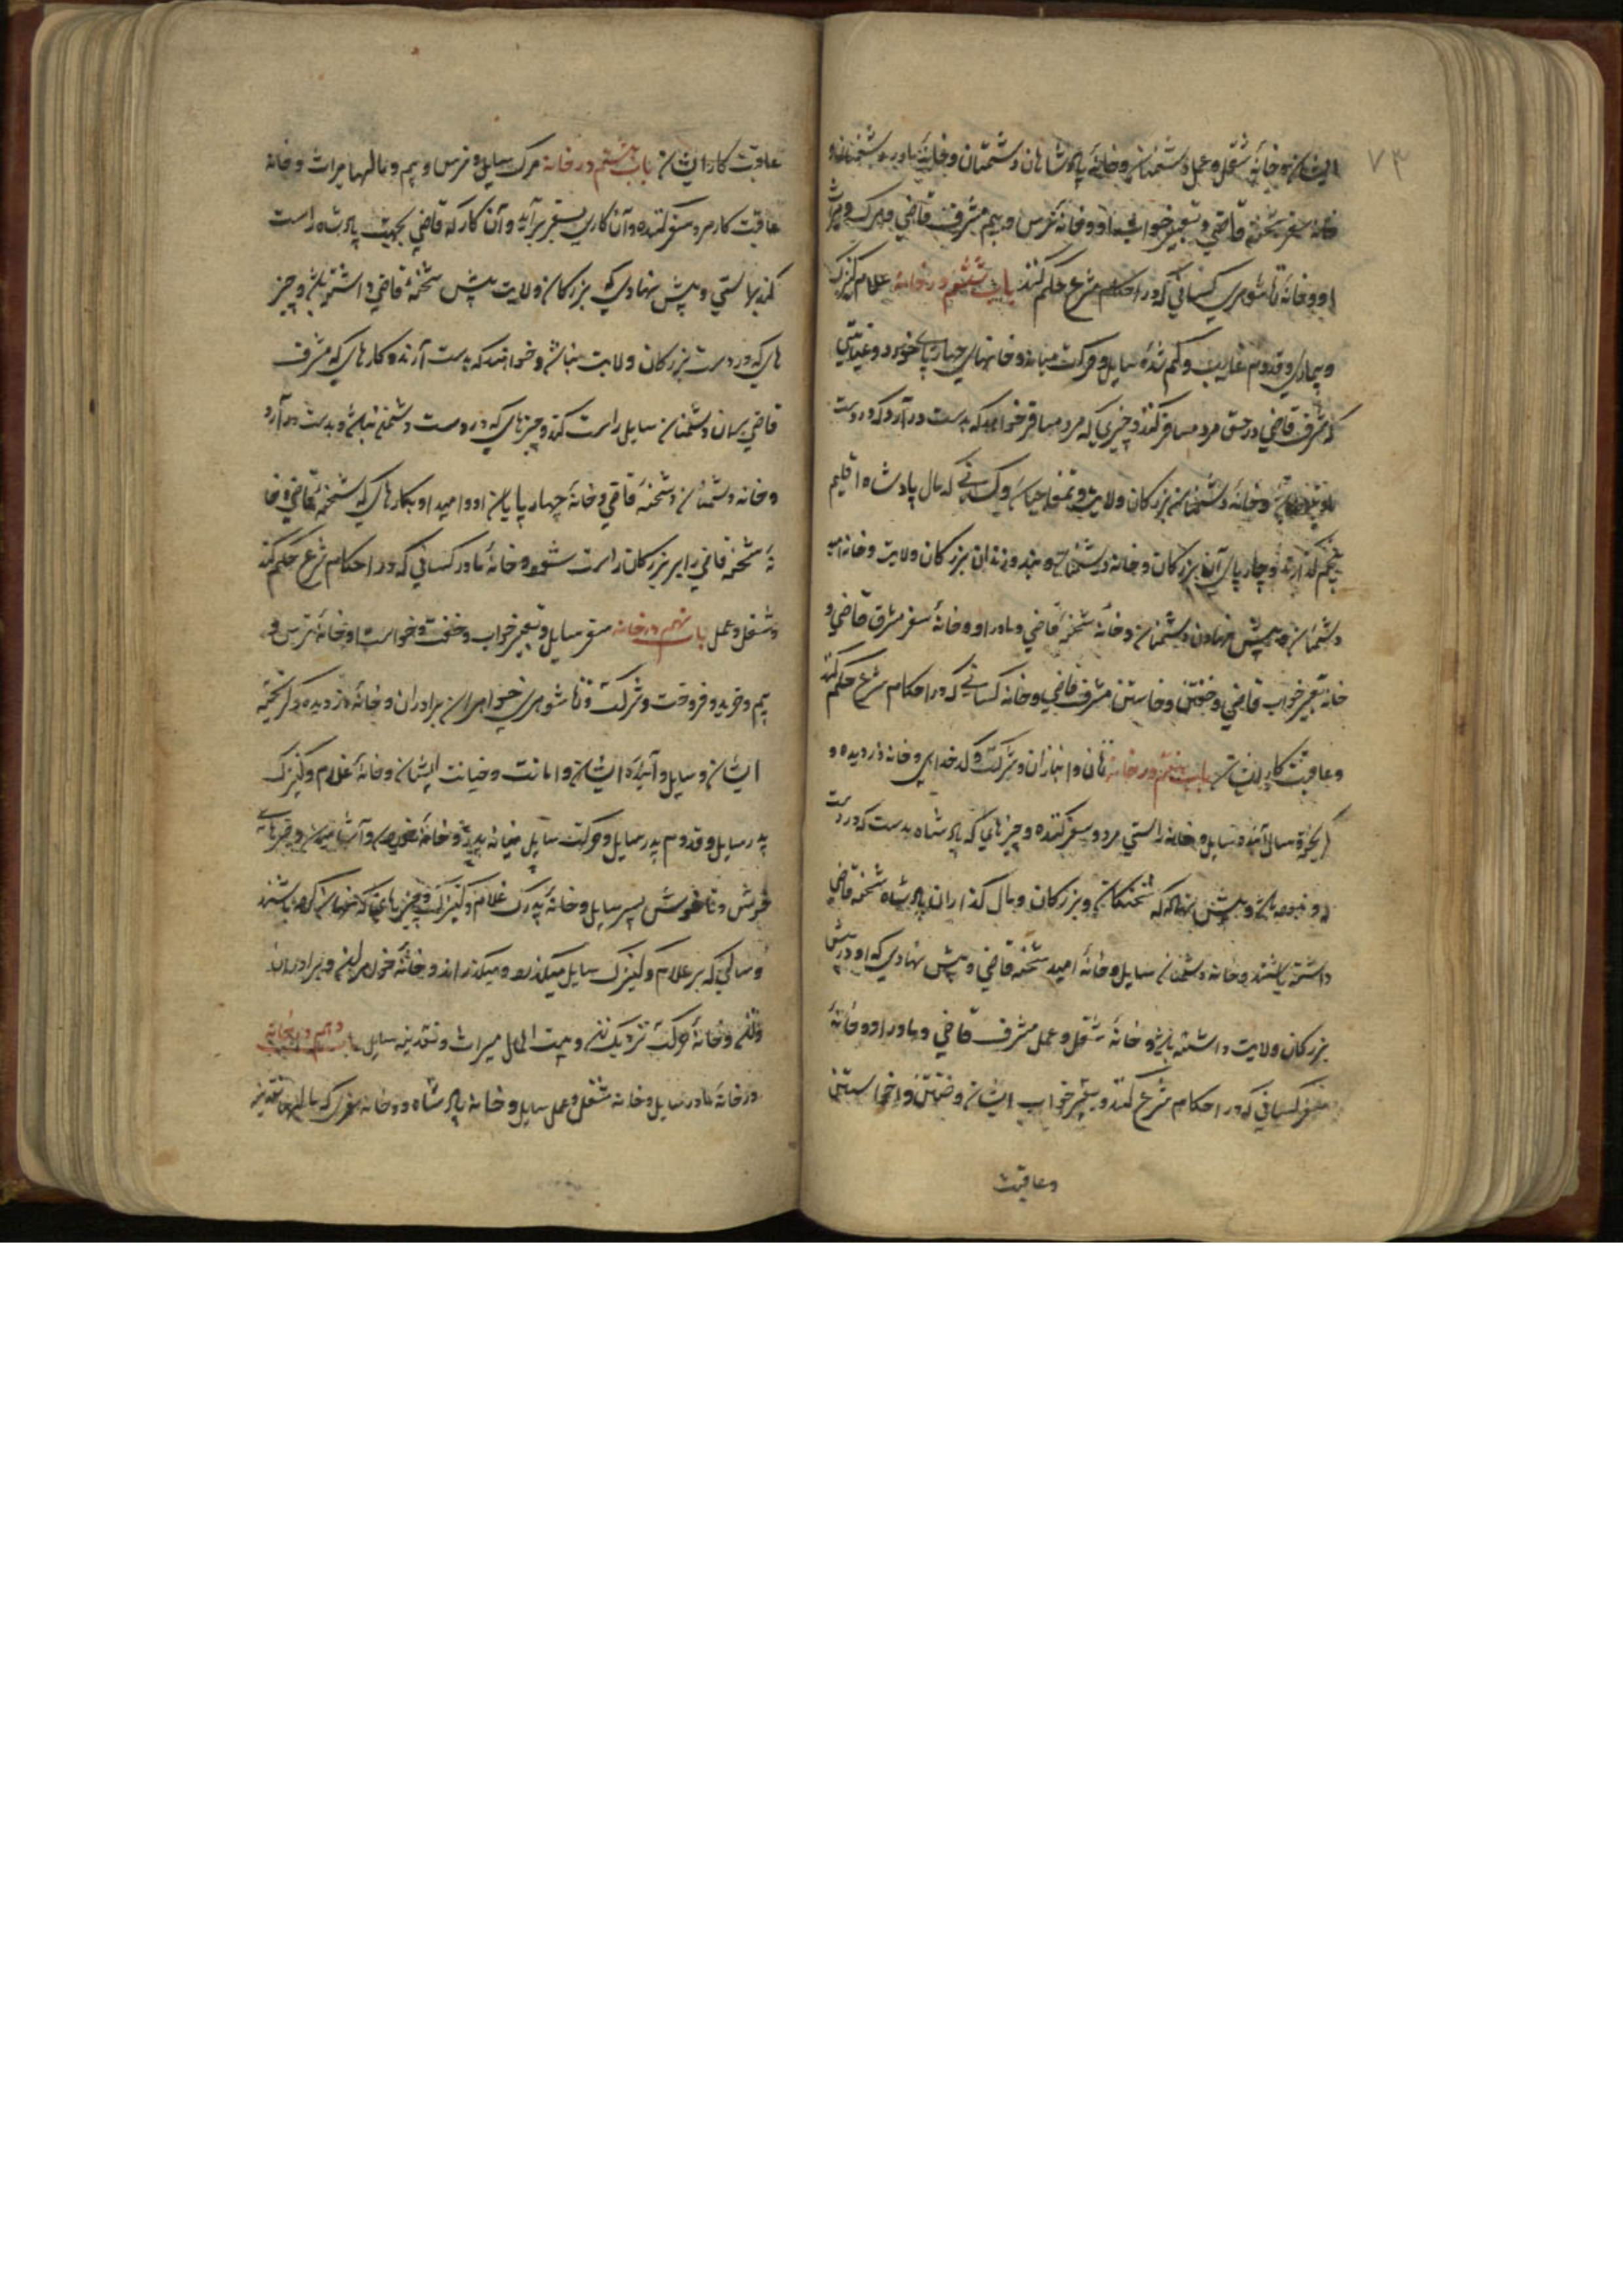 ۷۳
ایشان و خانهٔ شغل و عمل دشمنان و خانهٔ پادشاهان دشمنان و خانهٔ مادر دشمنان و
خانه سفر شحنهٔ قاضی و تعبیر خواب او و خانهٔ ترس و بیم مشرف قاضی و مرک و میراث
او و خانهٔ زناشوهری کسانی که در احکام شرع حکم کنند باب ششم در خانهٔ غلام کنیزک
و بیماری و قدوم غایب و کم شده سایل و حرکت میانه و خانهای چهارپای خورد و
که مشرف قاضی در حق مرد مسافر کند و چیزی که مرد مسافر خواهد که بدست در آرد که در دست
و خانهٔ دشمنان بزرکان ولایت و کسانی که مال پادشاه اقلیم
و چارپای آن بزرکان و خانه دشمنان و بند و زندان بزرکان ولایت و خانه امید
دشمنان و پیش نهادن دشمنان و خانهٔ شحنهٔ قاضی و مادر او و خانهٔ سفر مشرف قاضی و
خانه تعبیر خواب قاضی و خفتن و خاستن مشرف قاضی و خانه کسانی که در احکام شرع حکم کنند
و عاقبت کار ایشان باب هفتم در خانهٔ زنان و انبازان و شرکت و کدخدایی و خانه دزدیده و
کریختهٔ سال آینده سایل و خانه راستی مرد و سفر کننده و چیزهای که پادشاه بدست که در دست
او نبوده باشد و پیش نهاد که شحنکان و بزرکان و مال کذاران پادشاه شحنه قاضی
داشته باشند و خانه دشمنان سایل و خانهٔ امید شحنه قاضی و پیش نهادی که او در پیش
بزرکان ولایت داشته باشد و خانهٔ شغل و عمل مشرف قاضی و مادر او و خانهٔ
سفر کسانی که در احکام شرع کنند و تعبیر خواب ایشان و خفتن و خواستن
و عاقبت
عاقبت کار ایشان باب هشتم در خانه مرک سایل و ترس و بیم و مالها میراث و خانه
عاقبت کار مرد سفر کننده و آن کاری بسفر برآید و آن کار که قاضی بجهت پادشاه راست
کند براستی و پیش نهادی که بزرکان ولایت پیش شحنهٔ قاضی داشته باشد و چیز
های که در دست بزرکان ولایت نباشد و خواهند که بدست آرند و کارهای که مشرف
قاضی برسان دشمنان سایل راست کند و چیزهای که در دست دشمن نباشد و بدست در آرد
و خانه دشمنان و شحنهٔ قاضی و خانهٔ چهارپایان او و امید او بکارهای که شحنهٔ قاضی و خا
نهٔ شحنه قاضی را بر بزرکان راست شود و خانهٔ مادر کسانی که در احکام شرع حکم کنند
و شغل و عمل باب نهم در خانه سفر سایل و تعبیر خواب و خفت و خواست او خانهٔ ترس و
بیم و خرید و فروخت و شرکت و زناشوهری خواهران برادران و خانهٔ دزدیده و کریخته
ایشان و سایل و آیندهٔ ایشان و امانت و خیانت ایشان و خانهٔ غلام و کنیزک
پدر سایل و قدوم پدر سایل و حرکت سایل میانه پدر و خانهٔ
خوش و ناخوش پسر سایل و خانهٔ پدرک غلام و کنیزک و چیزهای که
و سالی که بر غلام و کنیزک سایل میکذرد و میکذراند و خانهٔ خواهر زن و برادر زن
و خانهٔ حرکت نزدیک زن و بیت المال میراث و نقدینه سایل باب دهم در خانهٔ
در خانهٔ مادر سایل و خانه شغل و عمل سایل و خانهٔ پادشاه و خانه سفری که